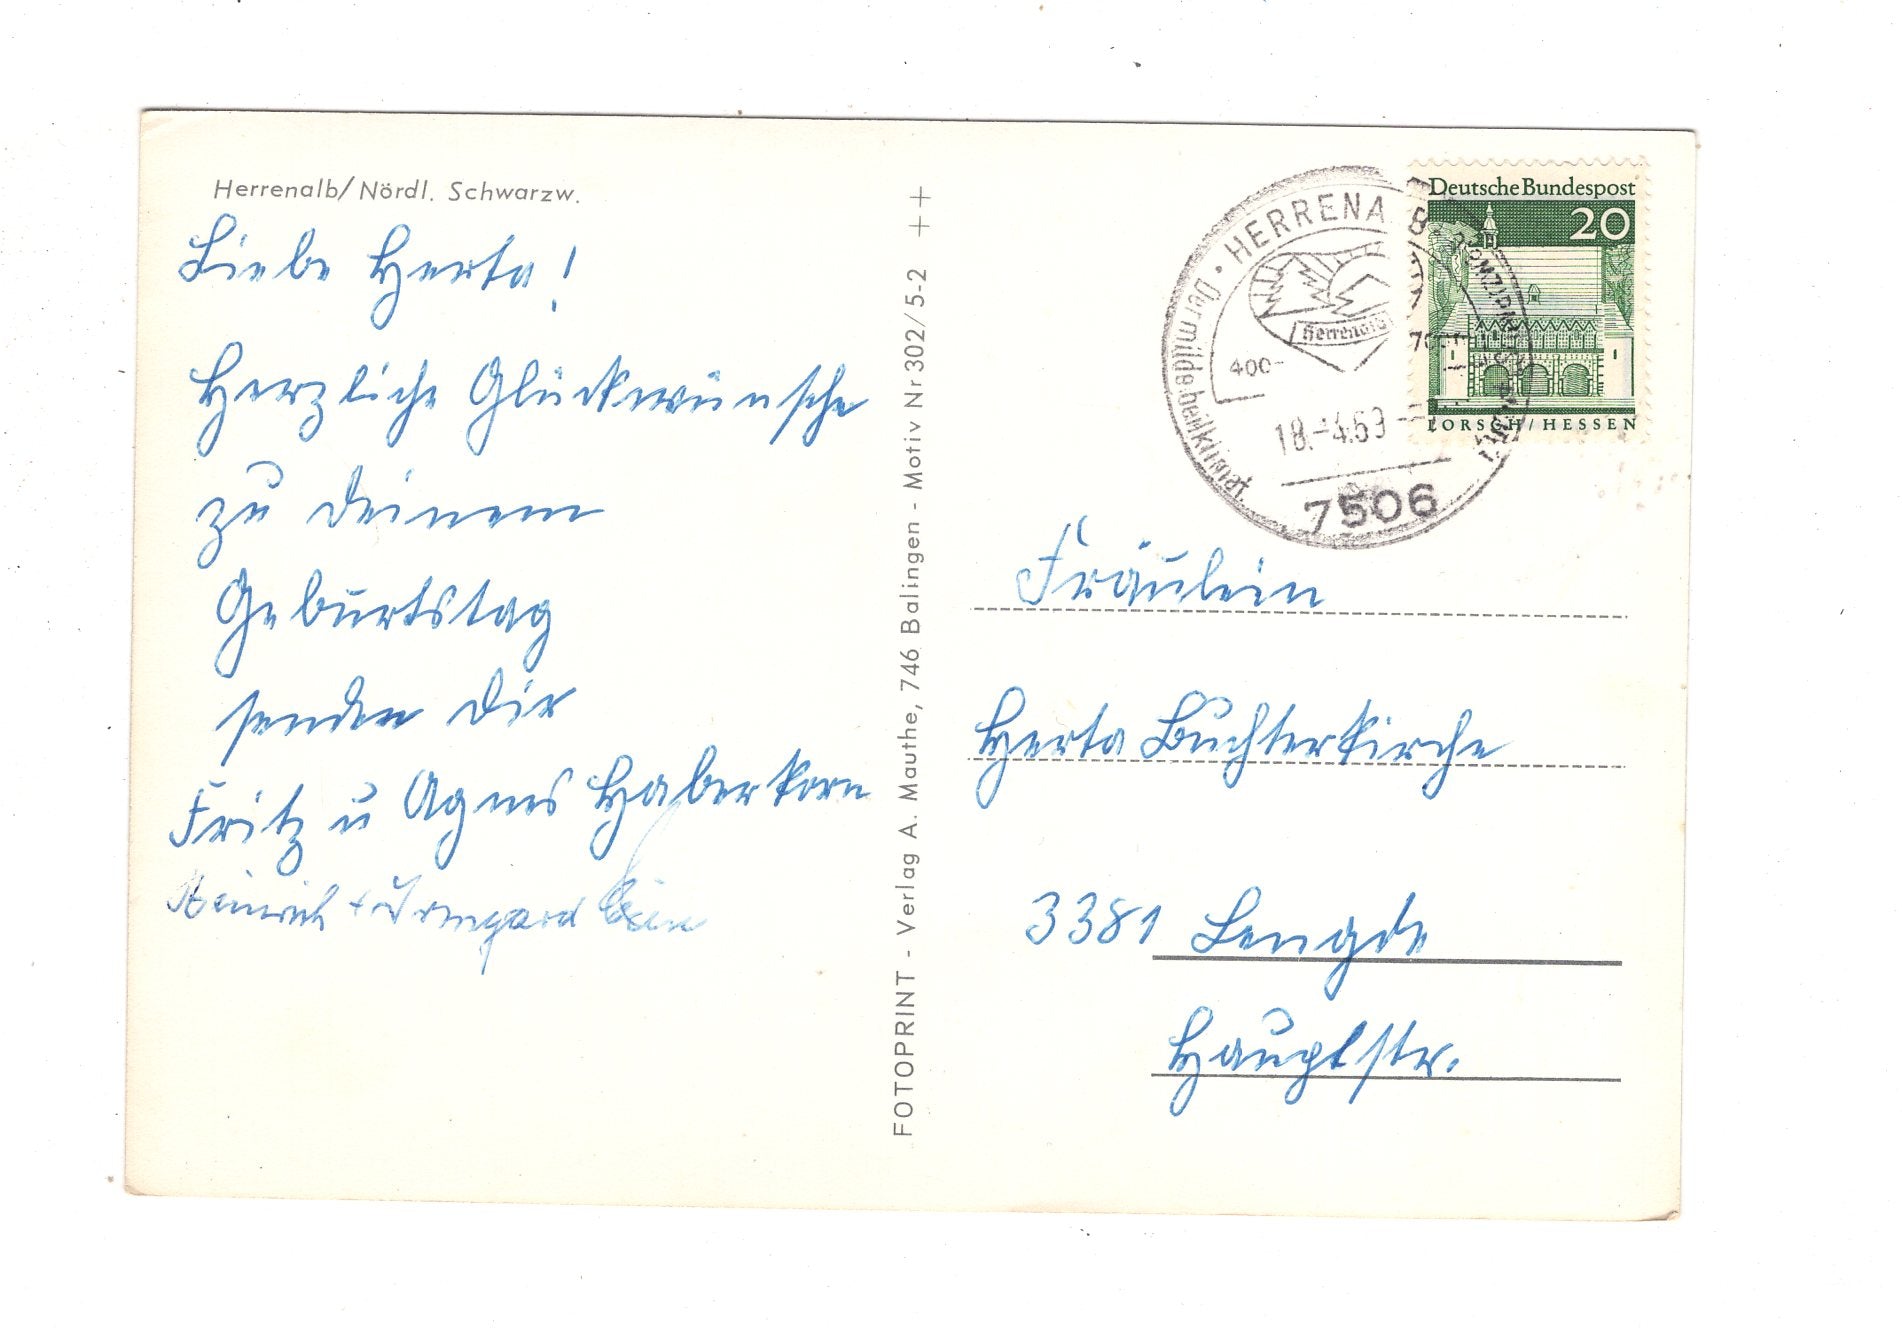 Herrenalb/Nördl. Schwarzw.
Liebe Herta!
Herzliche Glückwünsche
zu deinem
Geburtstag
senden dir
Fritz u Agnes Haberkorn
Heinrich + Irmgard
FOTOPRINT - Verlag A. Mauthe, 746 Balingen - Motiv Nr 302/5-2 ++
HERRENALB
Der milde heilklimat.
Herrenalb
400-
700
18.-4.69
7506
Deutsche Bundespost
20
LORSCH/HESSEN
Fräulein
Herta Buchterkirche
3381 Lengde
Hauptstr.